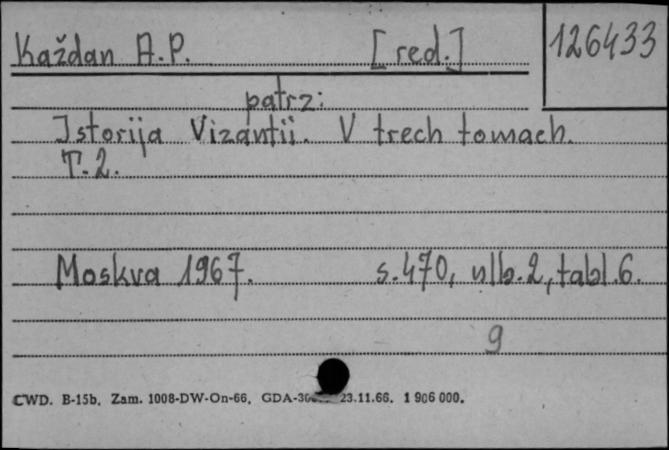 Každan A.P. [red.] 126433
patrz:
Istorija Vizantii. V trech tomach.
T. 2.
Moskva 1967. s. 470, nlb. 2, tabl. 6.
9
CWD. B-15b. Zam. 1008-DW-On-66. 23.11.66. 1 906 000.